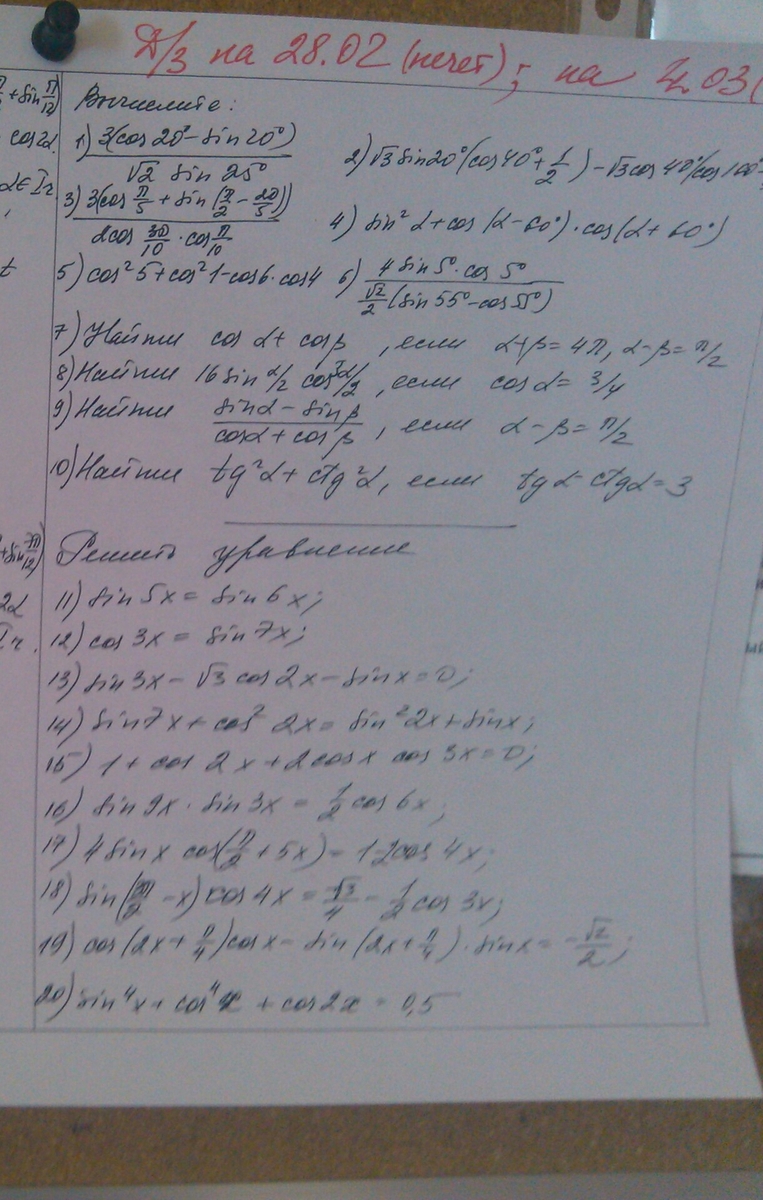 Д/З на 28.02 (нечет); на 4.03(
Вычислите:
1) 3(cos 20° - sin 20°) / √2 sin 25°
2) √3 sin 20° (cos 40° + 1/2) - √3 cos 40° (cos 100°
3) 3(cos π/5 + sin (π/2 - 2π/5)) / 2cos 3π/10 · cos π/10
4) sin² α + cos (α - 60°) · cos (α + 60°)
5) cos² 5 + cos² 1 - cos 6 · cos 4
6) 4 sin 5° · cos 5° / √2/2 (sin 55° - cos 55°)
7) Найти cos α + cos β, если α + β = 4π, α - β = π/2
8) Найти 16 sin α/2 cos α/2, если cos α = 3/4
9) Найти sin α - sin β / cos α + cos β, если α - β = π/2
10) Найти tg² α + ctg² α, если tg α - ctg α = 3
Решить уравнение
11) sin 5x = sin 6x;
12) cos 3x = sin 7x;
13) sin 3x - √3 cos 2x - sin x = 0;
14) sin 7x + cos² 2x = sin² 2x + sin x;
15) 1 + cos 2x + 2cos x cos 3x = 0;
16) sin 9x · sin 3x = 1/2 cos 6x;
17) 4 sin x cos(π/2 + 5x) = 1-2cos 4x;
18) sin( - x) cos 4x = √3/4 - 1/2 cos 3x;
19) cos (2x + π/4) cos x - sin (2x + π/4) · sin x = -√2/2;
20) sin⁴ x + cos⁴ x + cos 2x = 0,5